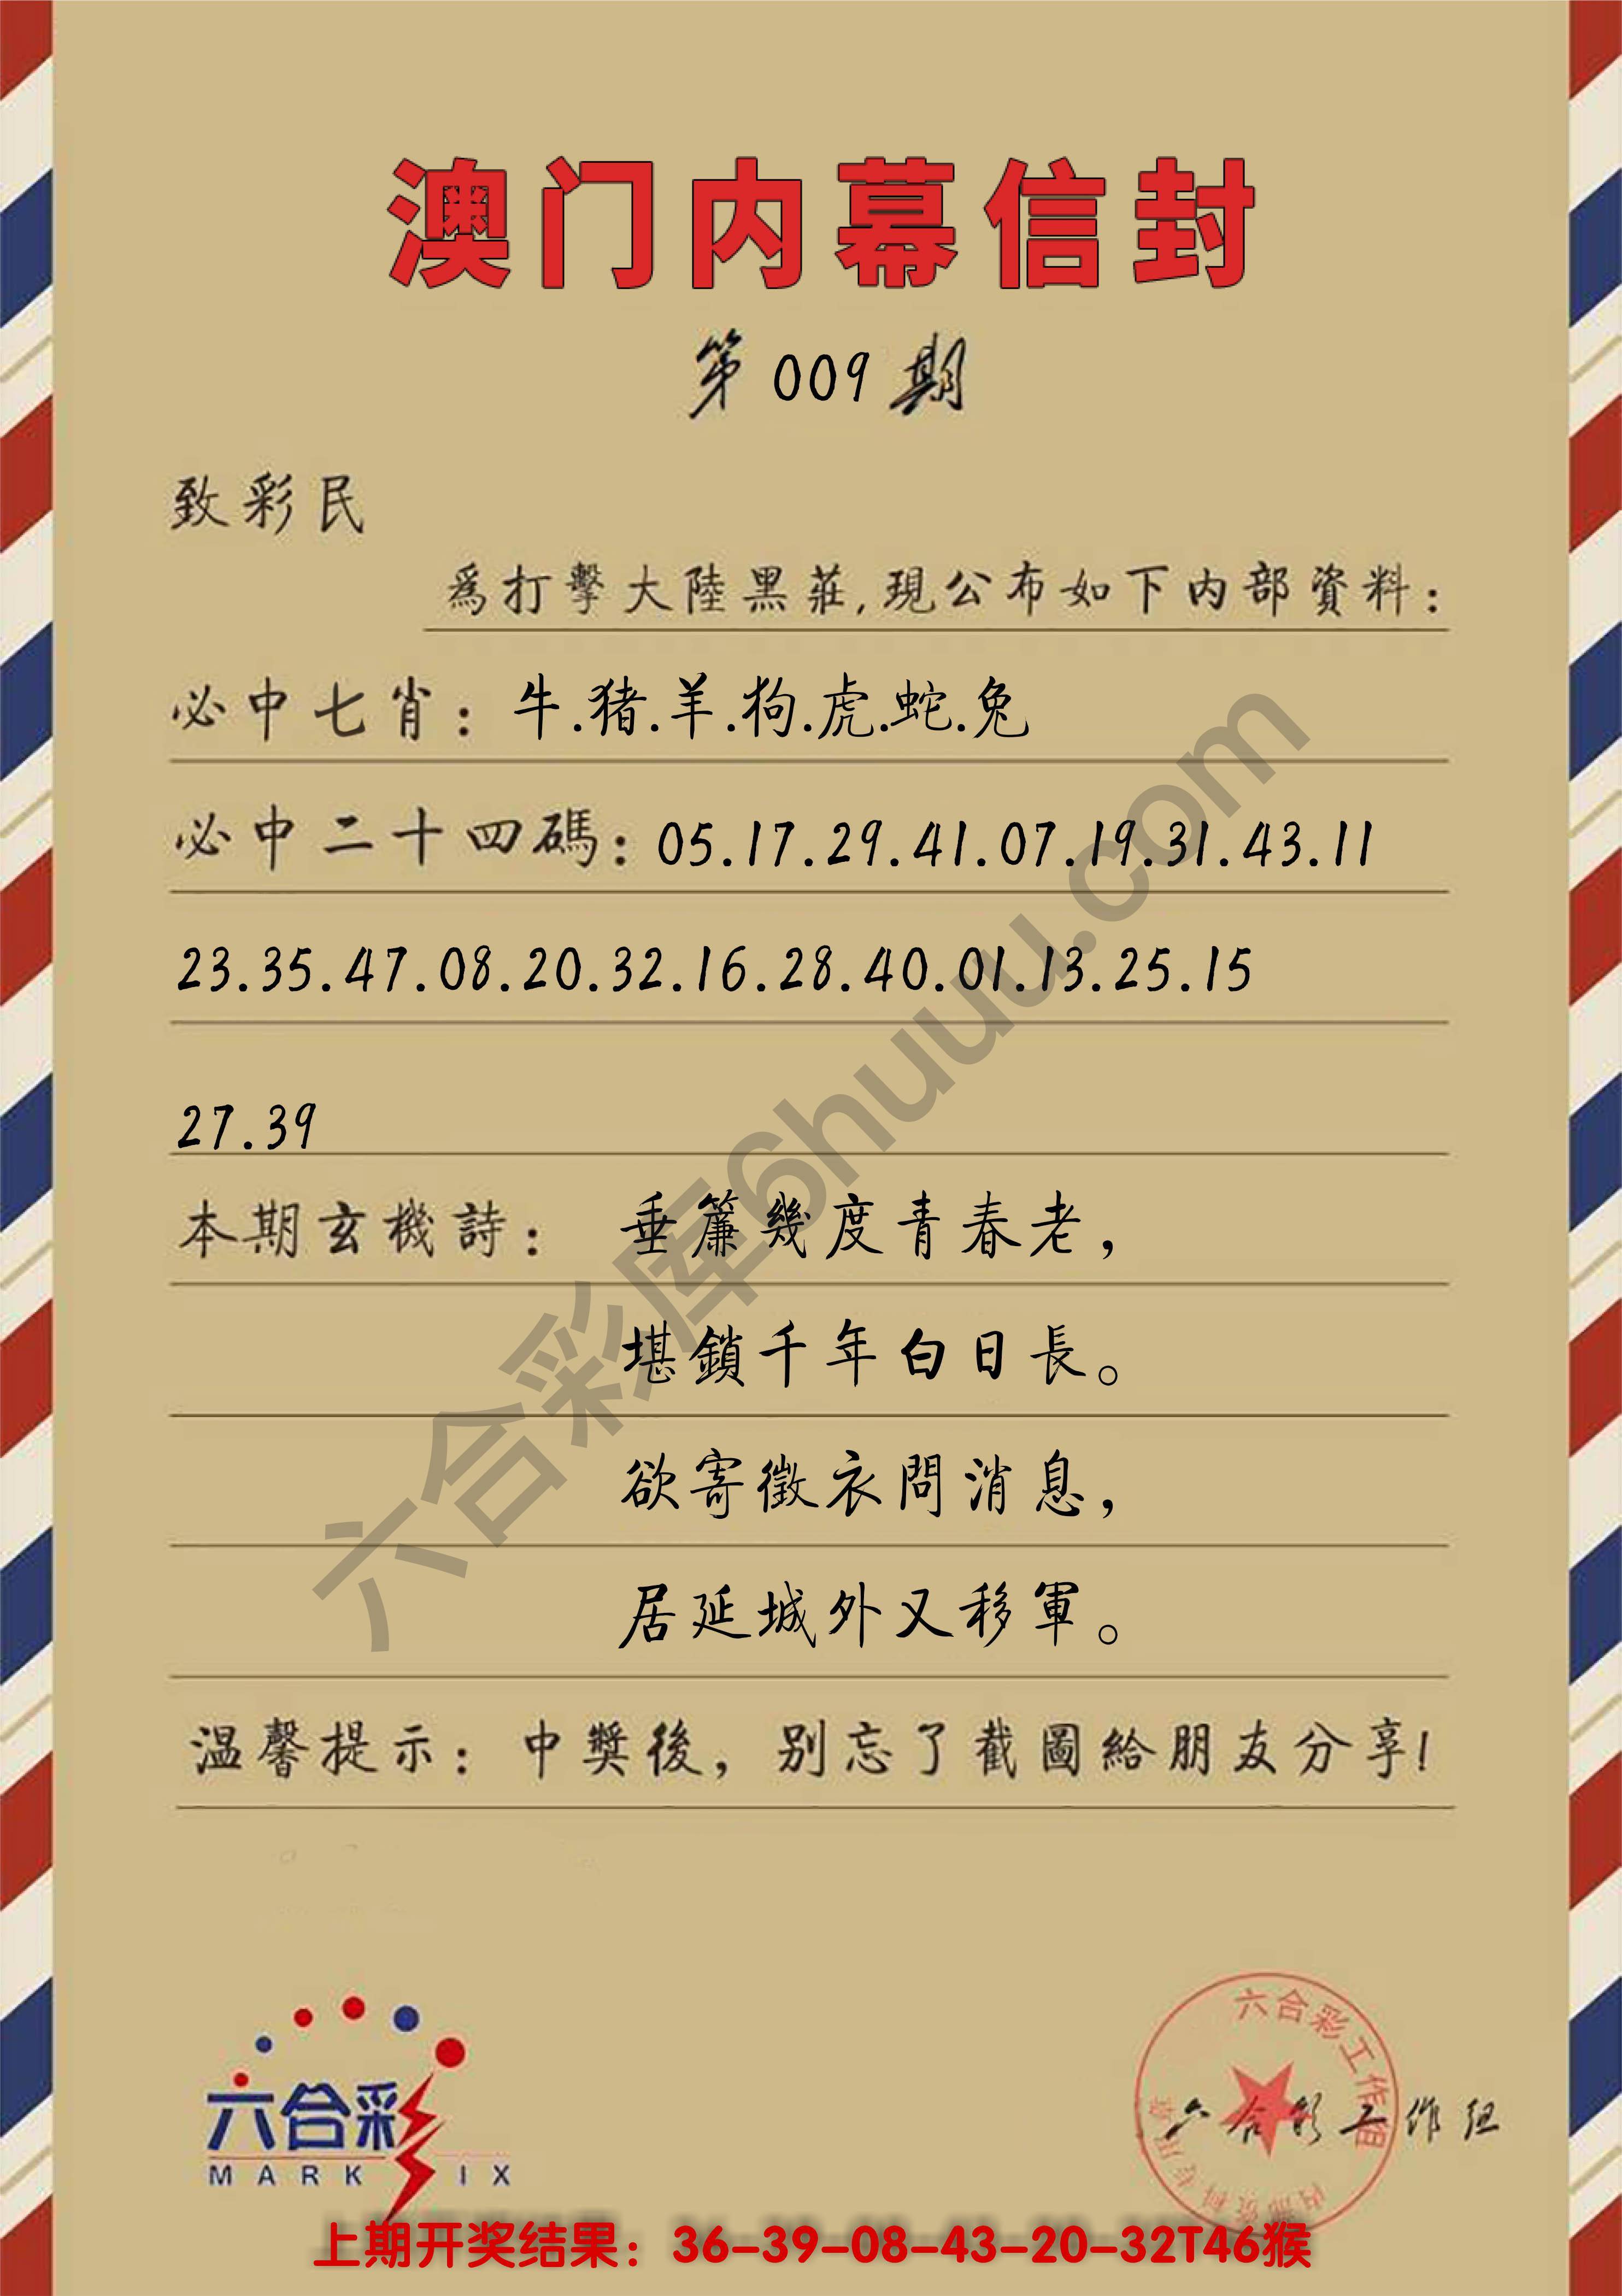 澳门内幕信封
第009期
致彩民
爲打擊大陸黑莊,現公布如下内部資料:
必中七肖: 牛.猪.羊.狗.虎.蛇.兔
必中二十四碼: 05.17.29.41.07.19.31.43.11
23.35.47.08.20.32.16.28.40.01.13.25.15
27.39
本期玄機詩: 垂簾幾度青春老,
堪鎖千年白日長。
欲寄徵衣問消息,
居延城外又移軍。
温馨提示: 中獎後,別忘了截圖給朋友分享!
六合彩库6huuu.com
六合彩
MARK IX
六合彩工作组
内部资料专用章
六合彩工作组
上期开奖结果: 36-39-08-43-20-32T46猴